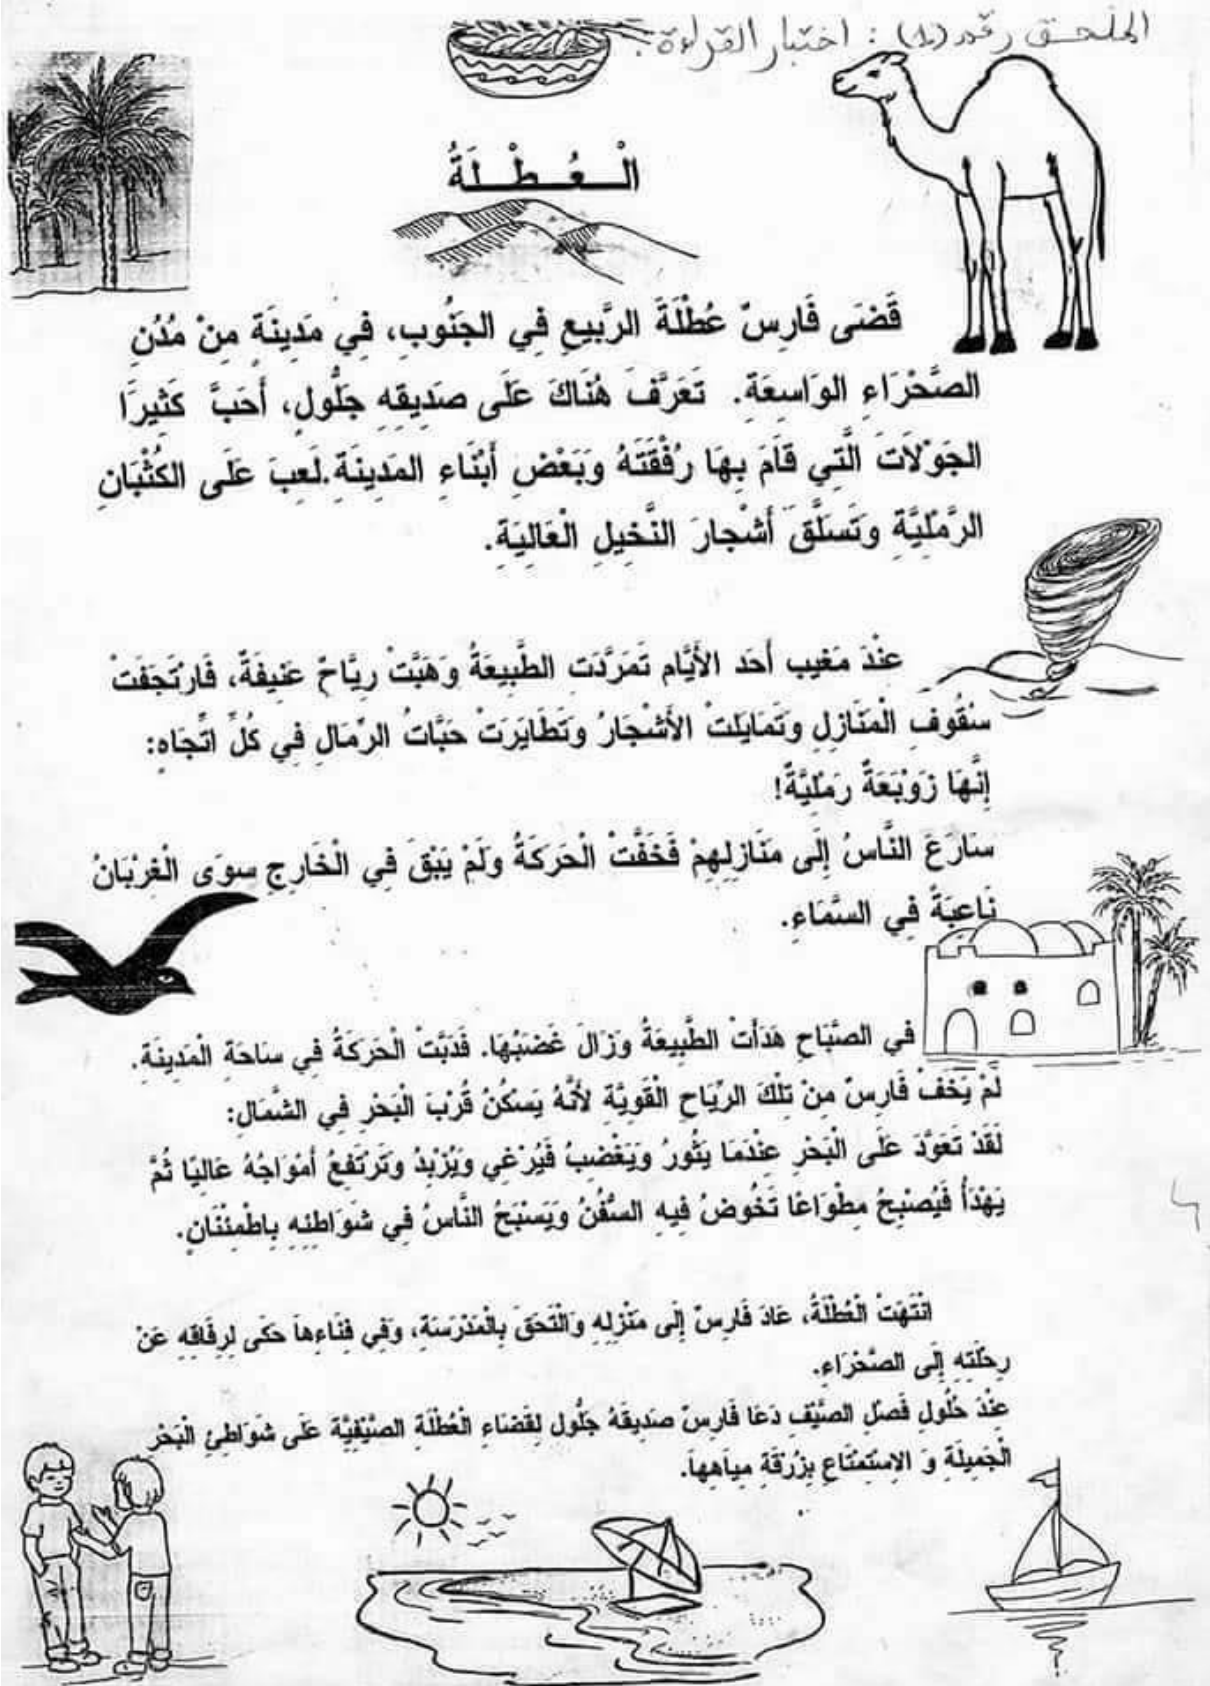 الملحق رقم (1): اختبار القراءة.
الْـعُـطْـلَةُ
قَضَى فَارِسٌ عُطْلَةَ الرَّبيعِ فِي الجَنُوبِ، فِي مَدِينَةٍ مِنْ مُدُنِ
الصَّحْرَاءِ الوَاسِعَةِ. تَعَرَّفَ هُنَاكَ عَلَى صَدِيقِهِ جَلُّولٍ، أَحَبَّ كَثِيرَا
الجَوْلَاتَ الَّتِي قَامَ بِهَا رُفْقَتَهُ وَبَعْضِ أَبْنَاءِ المَدِينَةِ.لَعِبَ عَلَى الكُثْبَانِ
الرَّمْلِيَّةِ وَتَسَلَّقَ أَشْجارَ النَّخِيلِ الْعَالِيَةِ.
عِنْدَ مَغِيبِ أَحَدِ الأَيَّامِ تَمَرَّدَتِ الطَّبِيعَةُ وَهَبَّتْ رِيَّاحٌ عَنِيفَةٌ، فَارْتَجَفَتْ
سُقُوفِ الْمَنَازِلِ وَتَمَايَلَتْ الأَشْجَارُ وَتَطَايَرَتْ حَبَّاتُ الرِّمَالِ فِي كُلِّ اتِّجَاهٍ:
إِنَّهَا زَوْبَعَةٌ رَمْلِيَّةٌ!
سَارَعَ النَّاسُ إِلَى مَنَازِلِهِمْ فَخَفَّتْ الْحَرَكَةُ وَلَمْ يَبْقَ فِي الْخَارِجِ سِوَى الْغِرْبَانُ
نَاعِبَةً فِي السَّمَاءِ.
في الصَّبَاحِ هَدَأَتْ الطَّبِيعَةُ وَزَالَ غَضَبُهَا. فَدَبَّتْ الْحَرَكَةُ فِي سَاحَةِ الْمَدِينَةِ.
لَمْ يَخَفْ فَارِسٌ مِنْ تِلْكَ الرِّيَاحِ الْقَوِيَّةِ لأَنَّهُ يَسْكُنُ قُرْبَ الْبَحْرِ فِي الشَّمَالِ:
لَقَدْ تَعَوَّدَ عَلَى الْبَحْرِ عِنْدَمَا يَثُورُ وَيَغْضِبُ فَيُرْغِي وَيُزْبِدُ وَتَرْتَفِعُ أَمْوَاجُهُ عَالِيًا ثُمَّ
يَهْدَأُ فَيُصْبِحُ مِطْوَاعًا تَخُوضُ فِيهِ السُّفُنُ وَيَسْبَحُ النَّاسُ فِي شَوَاطِئِهِ بِاطْمِئْنَانٍ.
انْتَهَتْ الْعُطْلَةُ، عَادَ فَارِسٌ إِلَى مَنْزِلِهِ وَالْتَحَقَ بِالْمَدْرَسَةِ، وَفِي فِنَاءِهاَ حَكَى لِرِفَاقِهِ عَنْ
رِحْلَتِهِ إِلَى الصَّحْرَاءِ.
عِنْدَ حُلُولِ فَصْلِ الصَّيْفِ دَعَا فَارِسٌ صَدِيقَهُ جَلُّول لِقَضَاءِ الْعُطْلَةِ الصَّيْفِيَّةِ عَلَى شَوَاطِئِ الْبَحْرِ
الْجَمِيلَةِ وَ الاِسْتِمْتَاعِ بِزُرْقَةِ مِيَاهِهاَ.